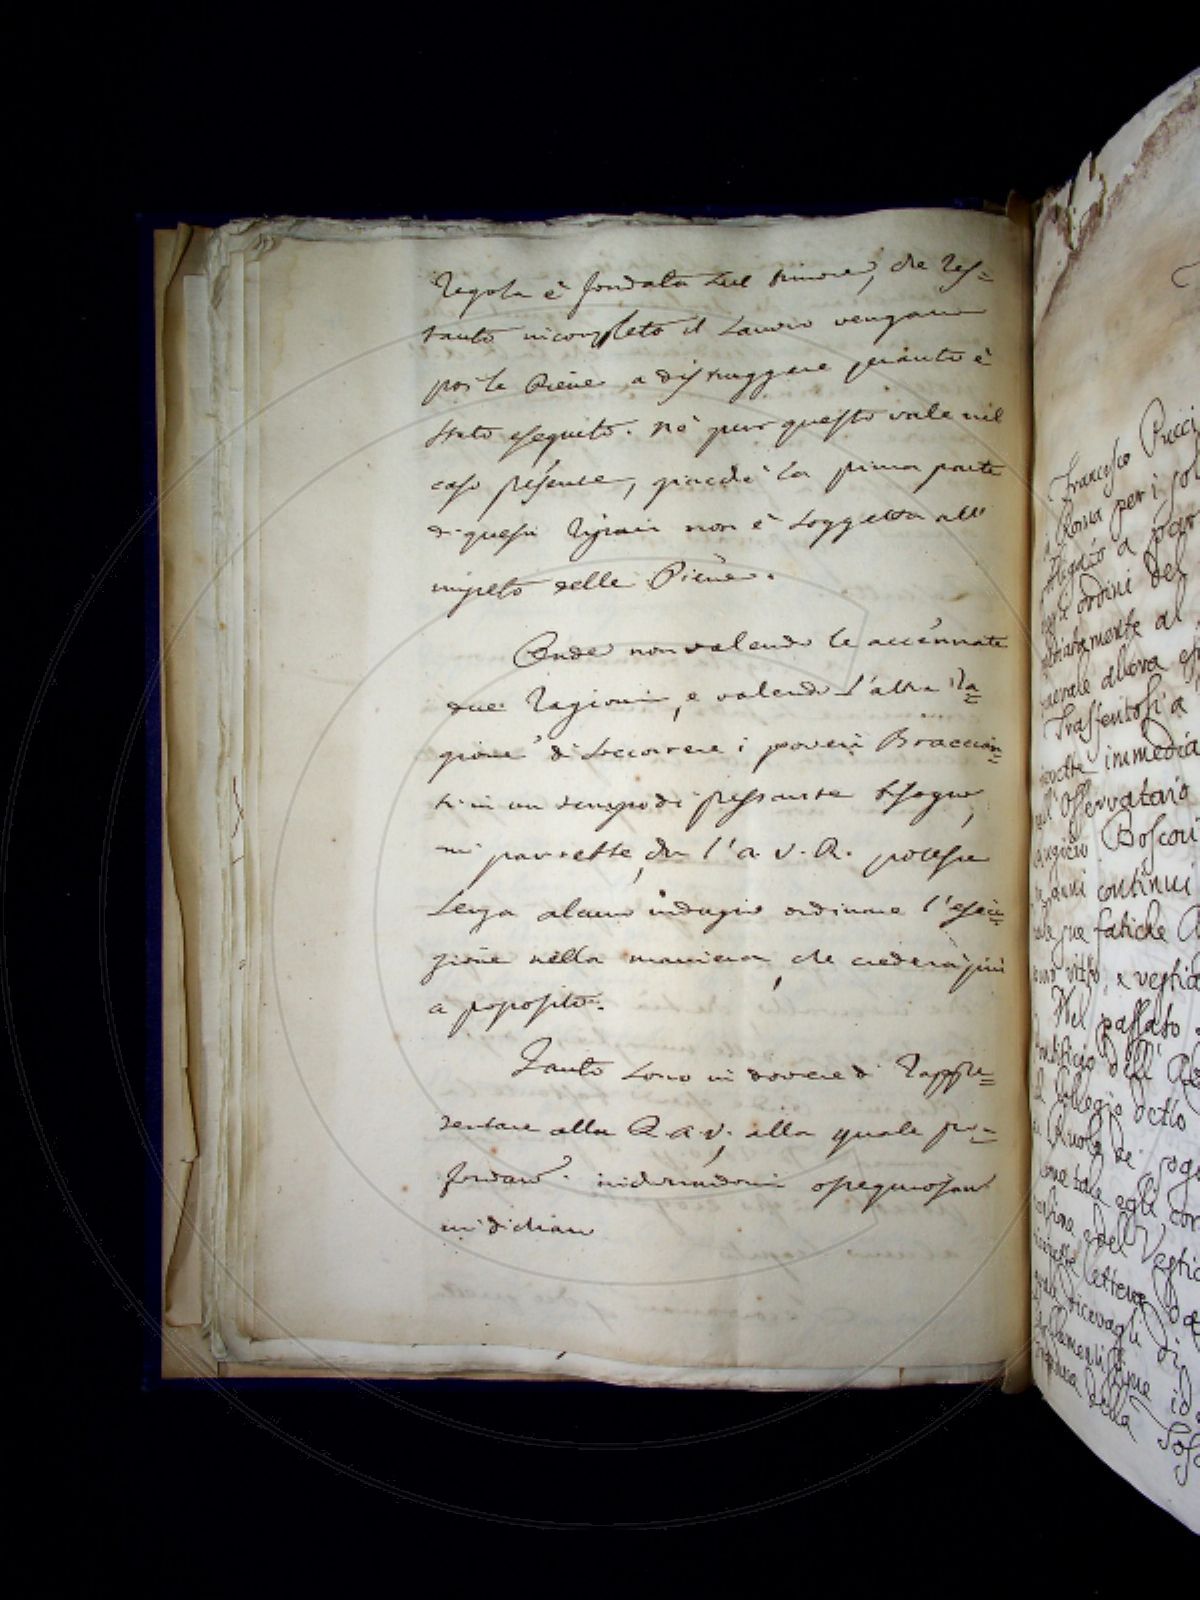 regola è fondata sul timore, che res=
tanto incompleto il Lavoro vengano
poi le Piene a distruggere quanto è
stato eseguito. Nè pur questo vale nel
caso presente, giacchè la prima parte
di questi ripari non è soggetta all'
impeto delle Piene.
Onde non valendo le accennate
due ragioni, e valendo l'altra ra=
gione di soccorrere i poveri Braccian=
ti in un tempo di pressante bisogno,
mi parrebbe, che l'A. V. R. potesse
senza alcun indugio ordinare l'esecu=
zione nella maniera, che crederà più
a proposito.
Tanto sono in dovere di rappre=
sentare alla R. A. V., alla quale pro=
fondam. inchinandomi ossequiosam
mi dichiaro
Francesco Pucci
a Roma per i sol
obligato a par
ordini del
al
allora
Trasferitosi a
immedia
Osservatorio
Boscovi
anni continui
sue fatiche
vitto, e vestia
Nel passato
Pontificio dell'
Collegio detto
come tale egli
e del Vestia
lettera
di
id
della